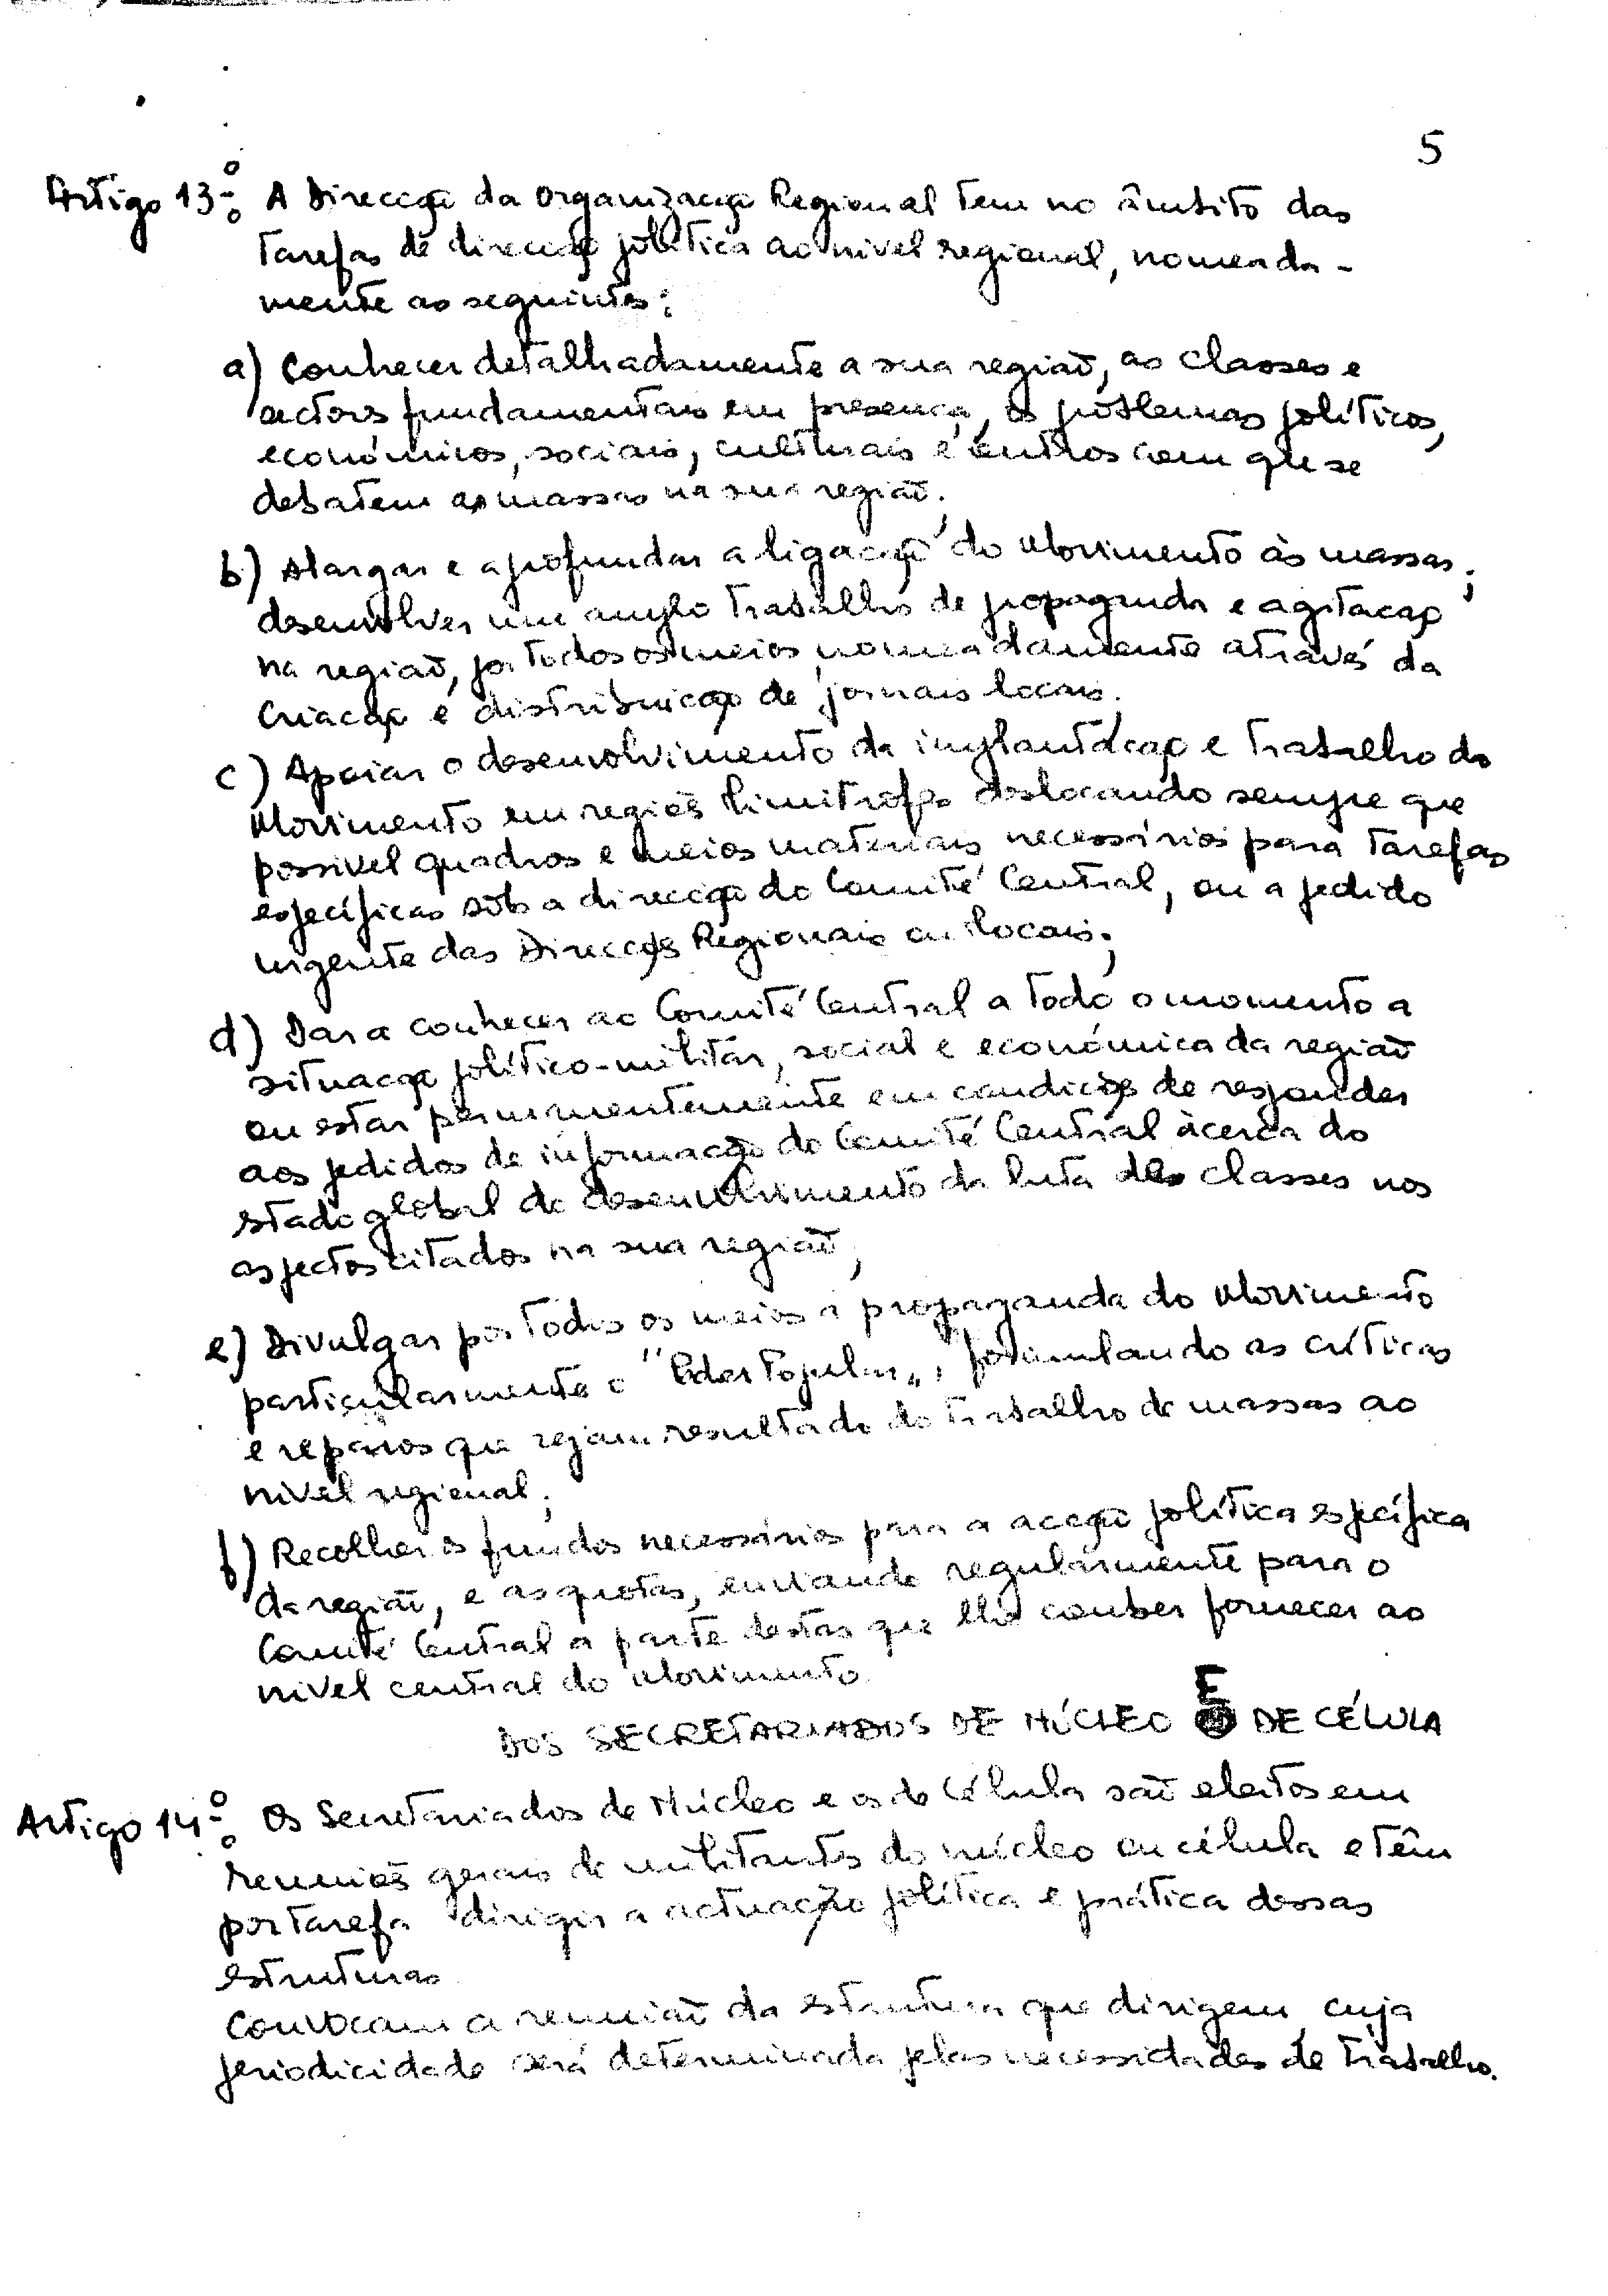 5
Artigo 13º: A Direcção da Organização Regional tem no âmbito das
tarefas de direcção política ao nivel regional, nomeada-
mente as seguintes:
a) Conhecer detalhadamente a sua região, as classes e
actores fundamentais em presença, os problemas políticos,
económicos, sociais, culturais e outros com que se
debatem as massas na sua região;
b) Alargar e aprofundar a ligação do Movimento às massas;
desenvolver um amplo trabalho de propaganda e agitação
na região, por todos os meios nomeadamente através da
criação e distribuição de jornais locais;
c) Apoiar o desenvolvimento da implantação e trabalho do
Movimento em regiões limitrofes deslocando sempre que
possivel quadros e meios materiais necessários para tarefas
específicas sob a direcção do Comité Central, ou a pedido
urgente das Direcções Regionais ou locais;
d) Dar a conhecer ao Comité Central a todo o momento a
situação político-militar, social e económica da região
ou estar permanentemente em condições de responder
aos pedidos de informação do Comité Central àcerca do
estado global do desenvolvimento da luta das classes nos
aspectos citados na sua região;
e) Divulgar por todos os meios a propaganda do Movimento
particularmente o "Poder Popular", formulando as críticas
e reparos que sejam resultado do trabalho de massas ao
nivel regional;
f) Recolher os fundos necessários para a acção política específica
da região, e as quotas, enviando regularmente para o
Comité Central a parte destas que lhe couber fornecer ao
nivel central do Movimento
DOS SECRETARIADOS DE NÚCLEO E DE CÉLULA
Artigo 14º: Os Secretariados de Núcleo e os de Célula são eleitos em
reuniões gerais de militantes do núcleo ou célula e têm
por tarefa dirigir a actuação política e prática dessas
estruturas
Convocam a reunião da estrutura que dirigem cuja
periodicidade será determinada pelas necessidades de trabalho.